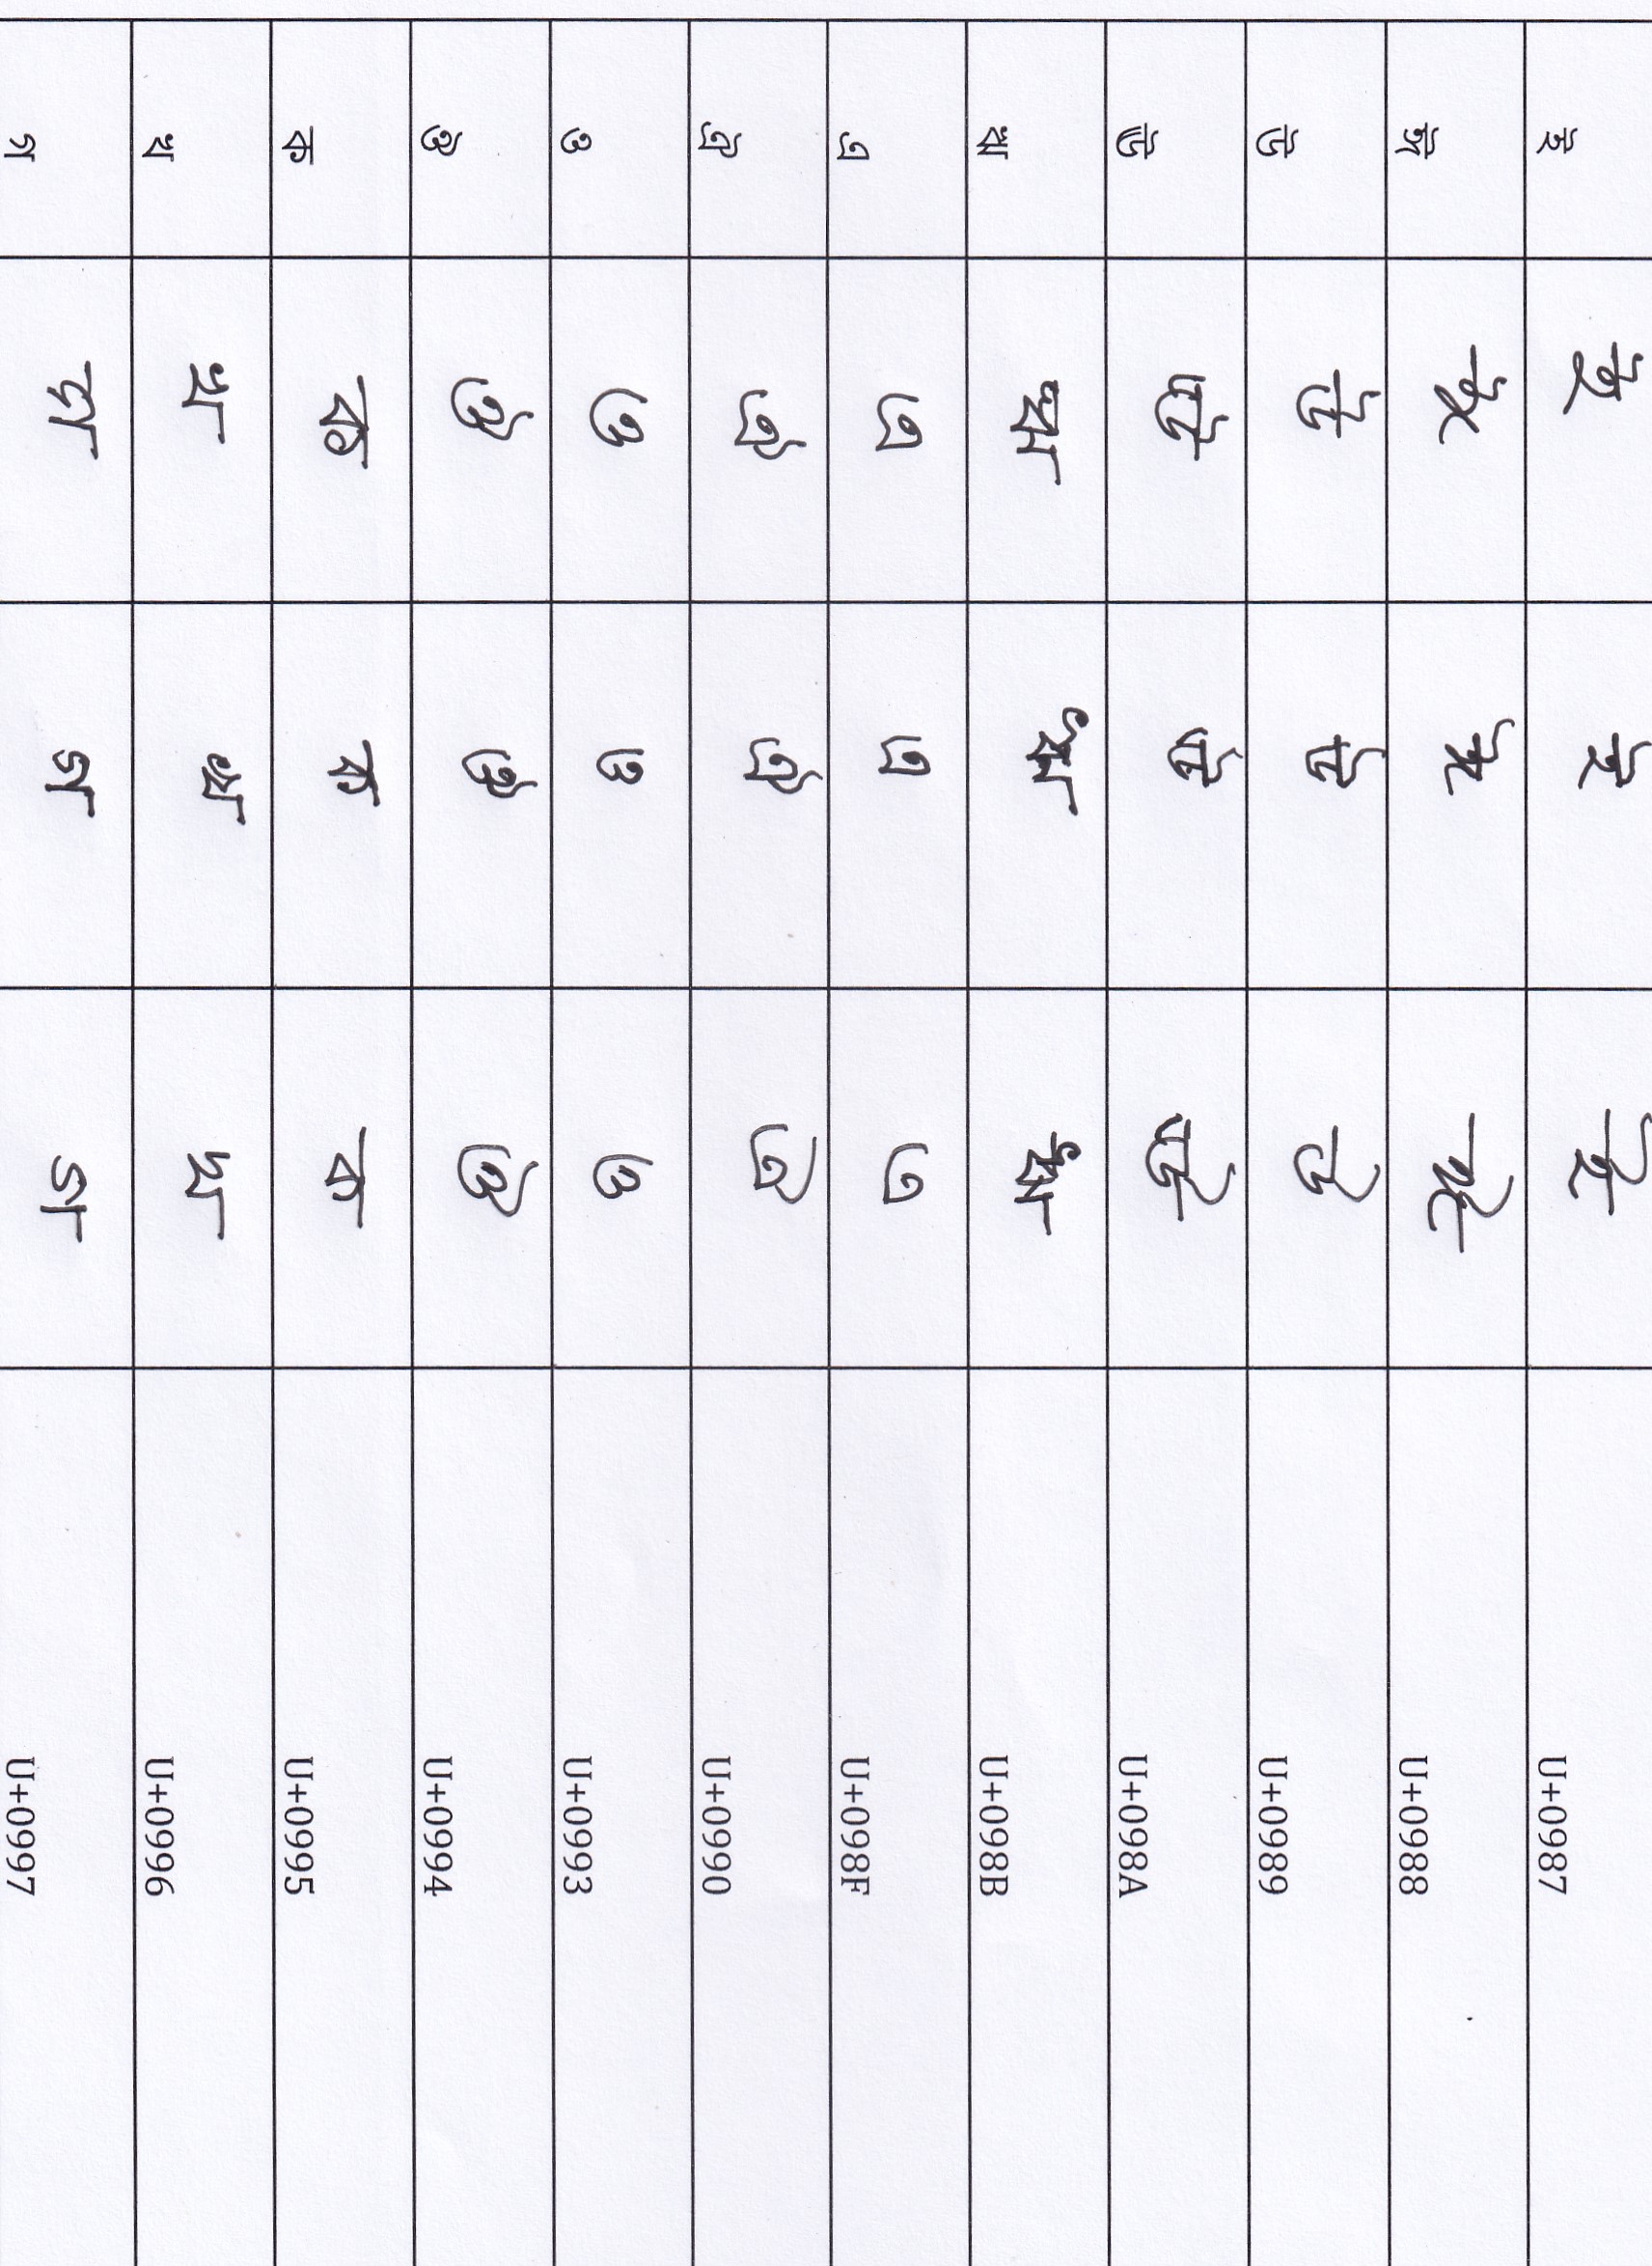 ই ই ই ই U+0987
ঈ ঈ ঈ ঈ U+0988
উ উ উ উ U+0989
ঊ ঊ ঊ ঊ U+098A
ঋ ঋ ঋ ঋ U+098B
এ এ এ এ U+098F
ঐ ঐ ঐ ঐ U+0990
ও ও ও ও U+0993
ঔ ঔ ঔ ঔ U+0994
ক ক ক ক U+0995
খ খ খ খ U+0996
গ গ গ গ U+0997